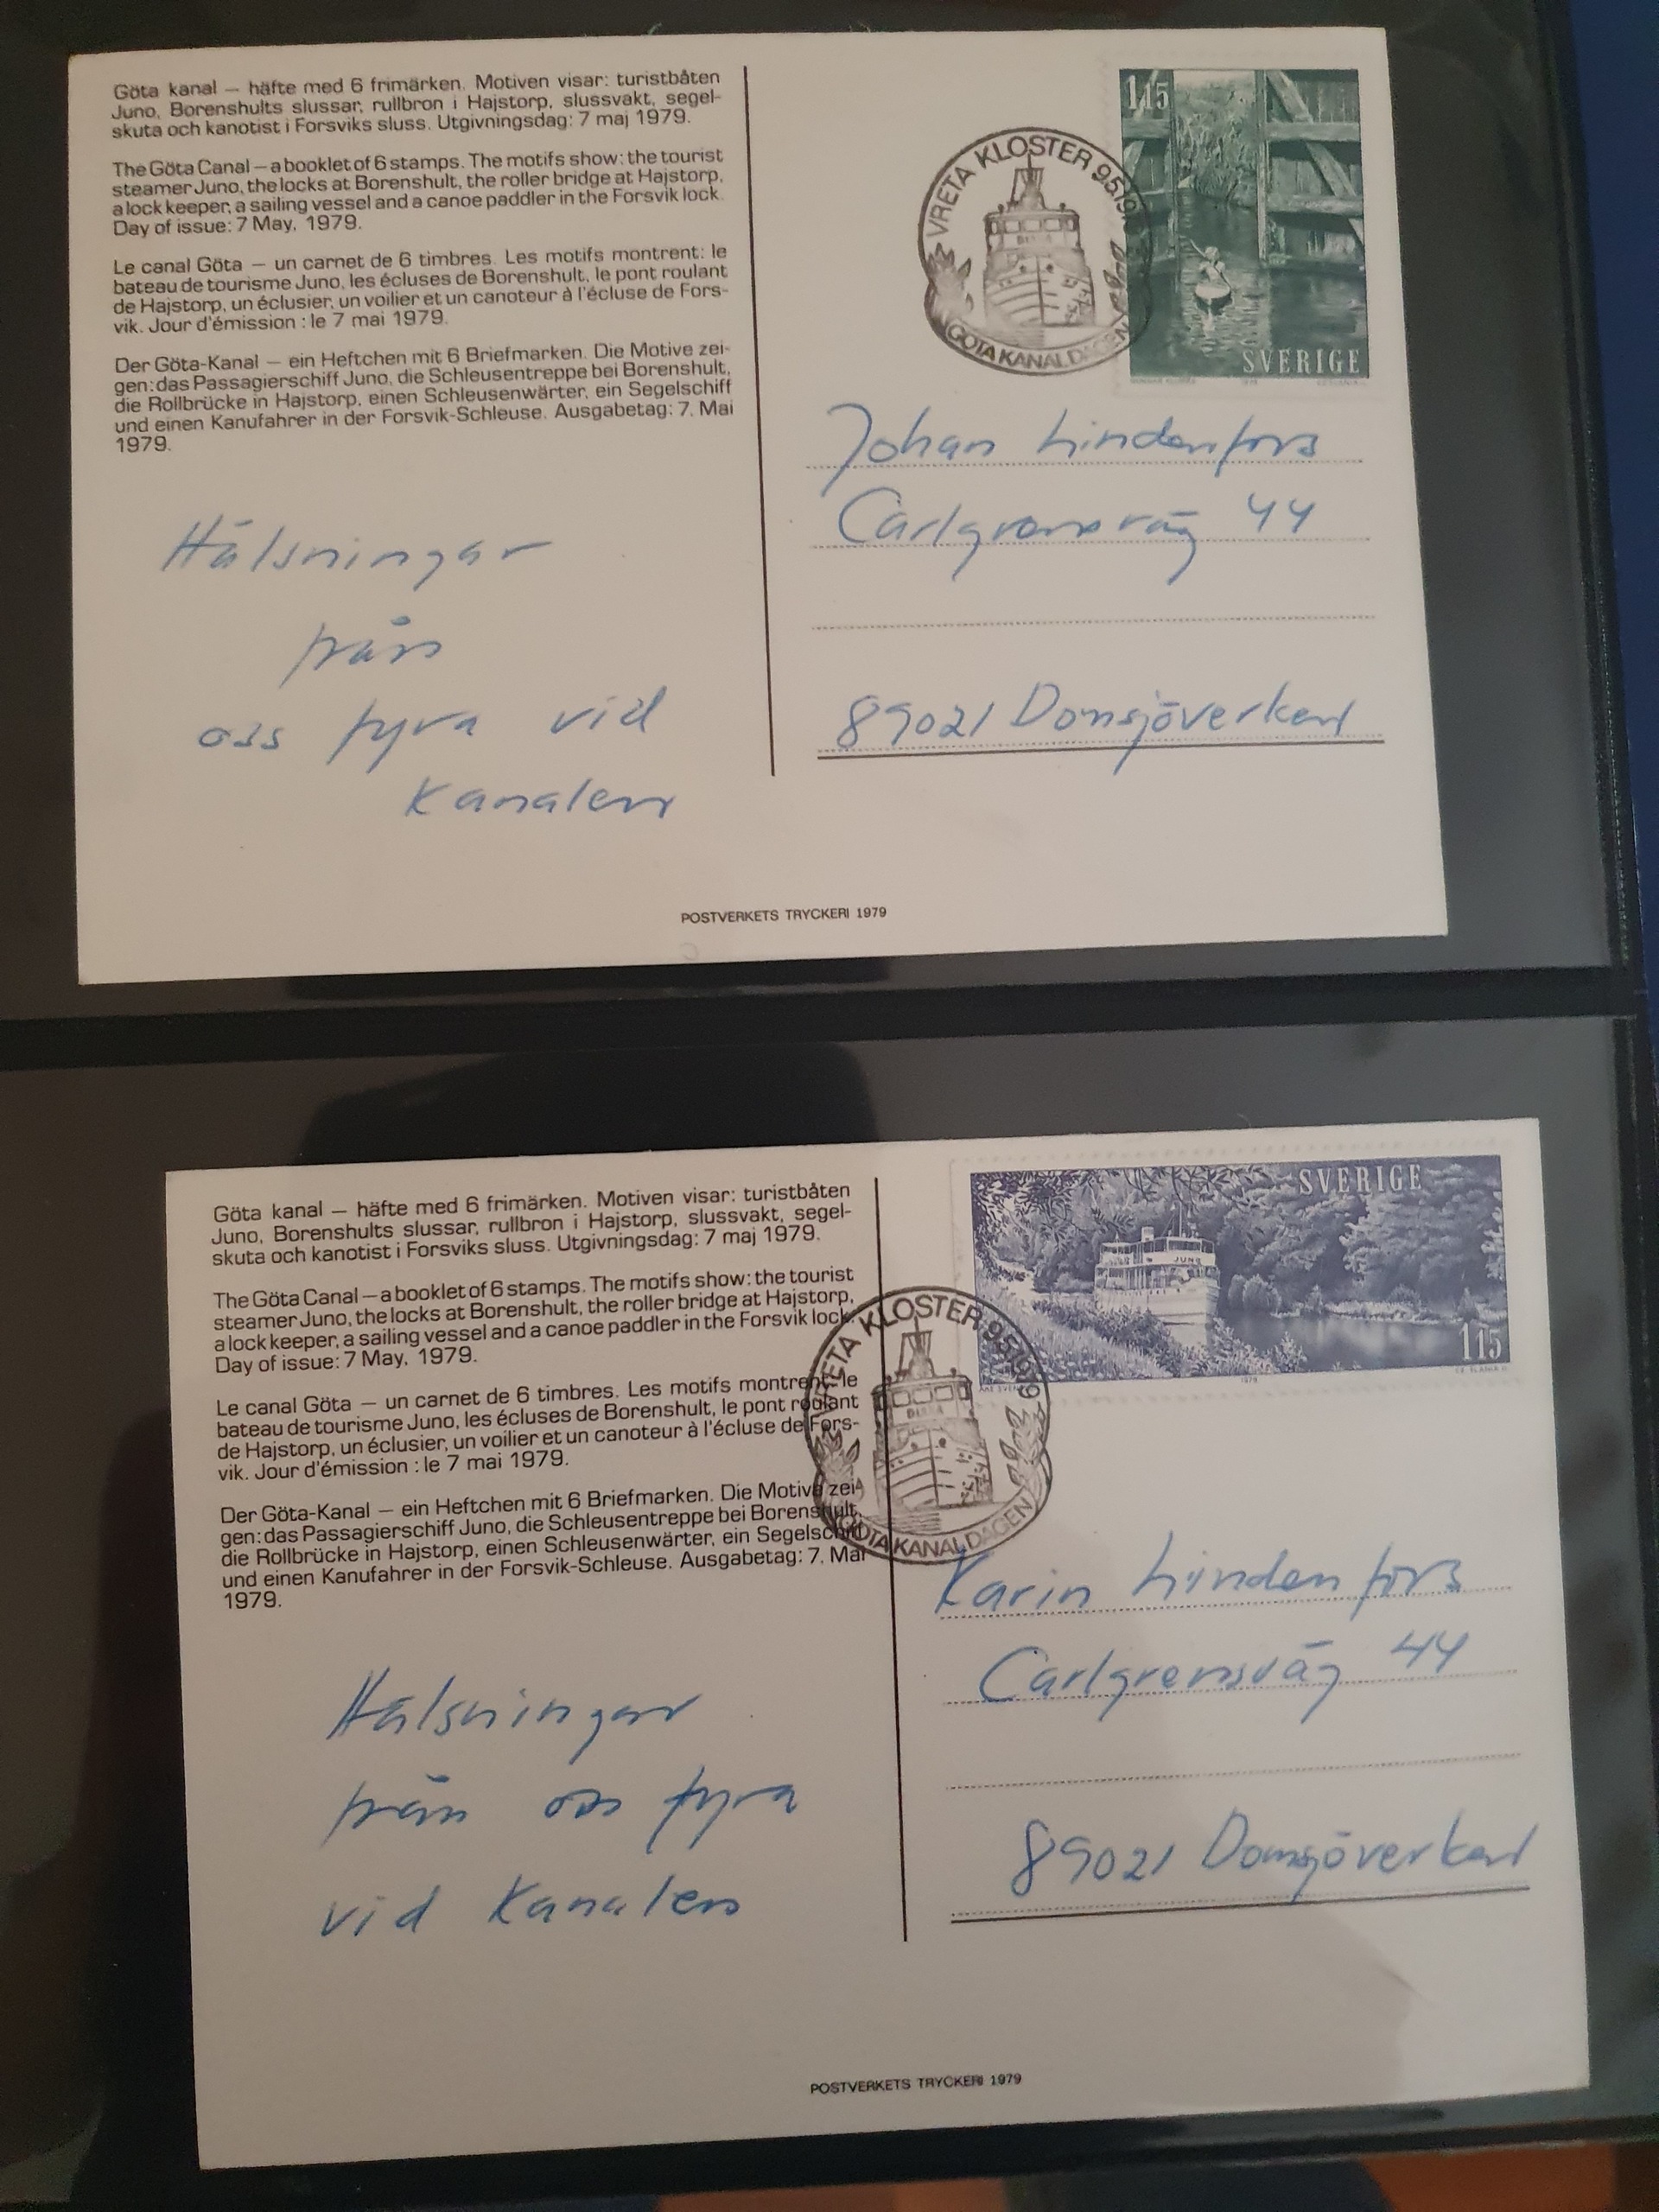 Göta kanal — häfte med 6 frimärken. Motiven visar: turistbåten
Juno, Borenshults slussar, rullbron i Hajstorp, slussvakt, segel-
skuta och kanotist i Forsviks sluss. Utgivningsdag: 7 maj 1979.
The Göta Canal — a booklet of 6 stamps. The motifs show: the tourist
steamer Juno, the locks at Borenshult, the roller bridge at Hajstorp,
a lock keeper, a sailing vessel and a canoe paddler in the Forsvik lock.
Day of issue: 7 May, 1979.
Le canal Göta — un carnet de 6 timbres. Les motifs montrent: le
bateau de tourisme Juno, les écluses de Borenshult, le pont roulant
de Hajstorp, un éclusier, un voilier et un canoteur à l'écluse de Fors-
vik. Jour d'émission : le 7 mai 1979.
Der Göta-Kanal — ein Heftchen mit 6 Briefmarken. Die Motive zei-
gen: das Passagierschiff Juno, die Schleusentreppe bei Borenshult,
die Rollbrücke in Hajstorp, einen Schleusenwärter, ein Segelschiff
und einen Kanufahrer in der Forsvik-Schleuse. Ausgabetag: 7. Mai
1979.
Hälsningar
från
oss fyra vid
Kanalen
115
SVERIGE
VRETA KLOSTER 9519
GÖTA KANALDAGEN
Johan Lindenfors
Carlgrensväg 44
89021 Domsjöverken
POSTVERKETS TRYCKERI 1979
Göta kanal — häfte med 6 frimärken. Motiven visar: turistbåten
Juno, Borenshults slussar, rullbron i Hajstorp, slussvakt, segel-
skuta och kanotist i Forsviks sluss. Utgivningsdag: 7 maj 1979.
The Göta Canal — a booklet of 6 stamps. The motifs show: the tourist
steamer Juno, the locks at Borenshult, the roller bridge at Hajstorp,
a lock keeper, a sailing vessel and a canoe paddler in the Forsvik lock.
Day of issue: 7 May, 1979.
Le canal Göta — un carnet de 6 timbres. Les motifs montrent: le
bateau de tourisme Juno, les écluses de Borenshult, le pont roulant
de Hajstorp, un éclusier, un voilier et un canoteur à l'écluse de Fors-
vik. Jour d'émission : le 7 mai 1979.
Der Göta-Kanal — ein Heftchen mit 6 Briefmarken. Die Motive zei-
gen: das Passagierschiff Juno, die Schleusentreppe bei Borenshult,
die Rollbrücke in Hajstorp, einen Schleusenwärter, ein Segelschiff
und einen Kanufahrer in der Forsvik-Schleuse. Ausgabetag: 7. Mai
1979.
Hälsningar
från oss fyra
vid Kanalen
SVERIGE
JUNO
115
1979
VRETA KLOSTER 951979
DIANA
GÖTA KANALDAGEN
Karin Lindenfors
Carlgrensväg 44
89021 Domsjöverken
POSTVERKETS TRYCKERI 1979